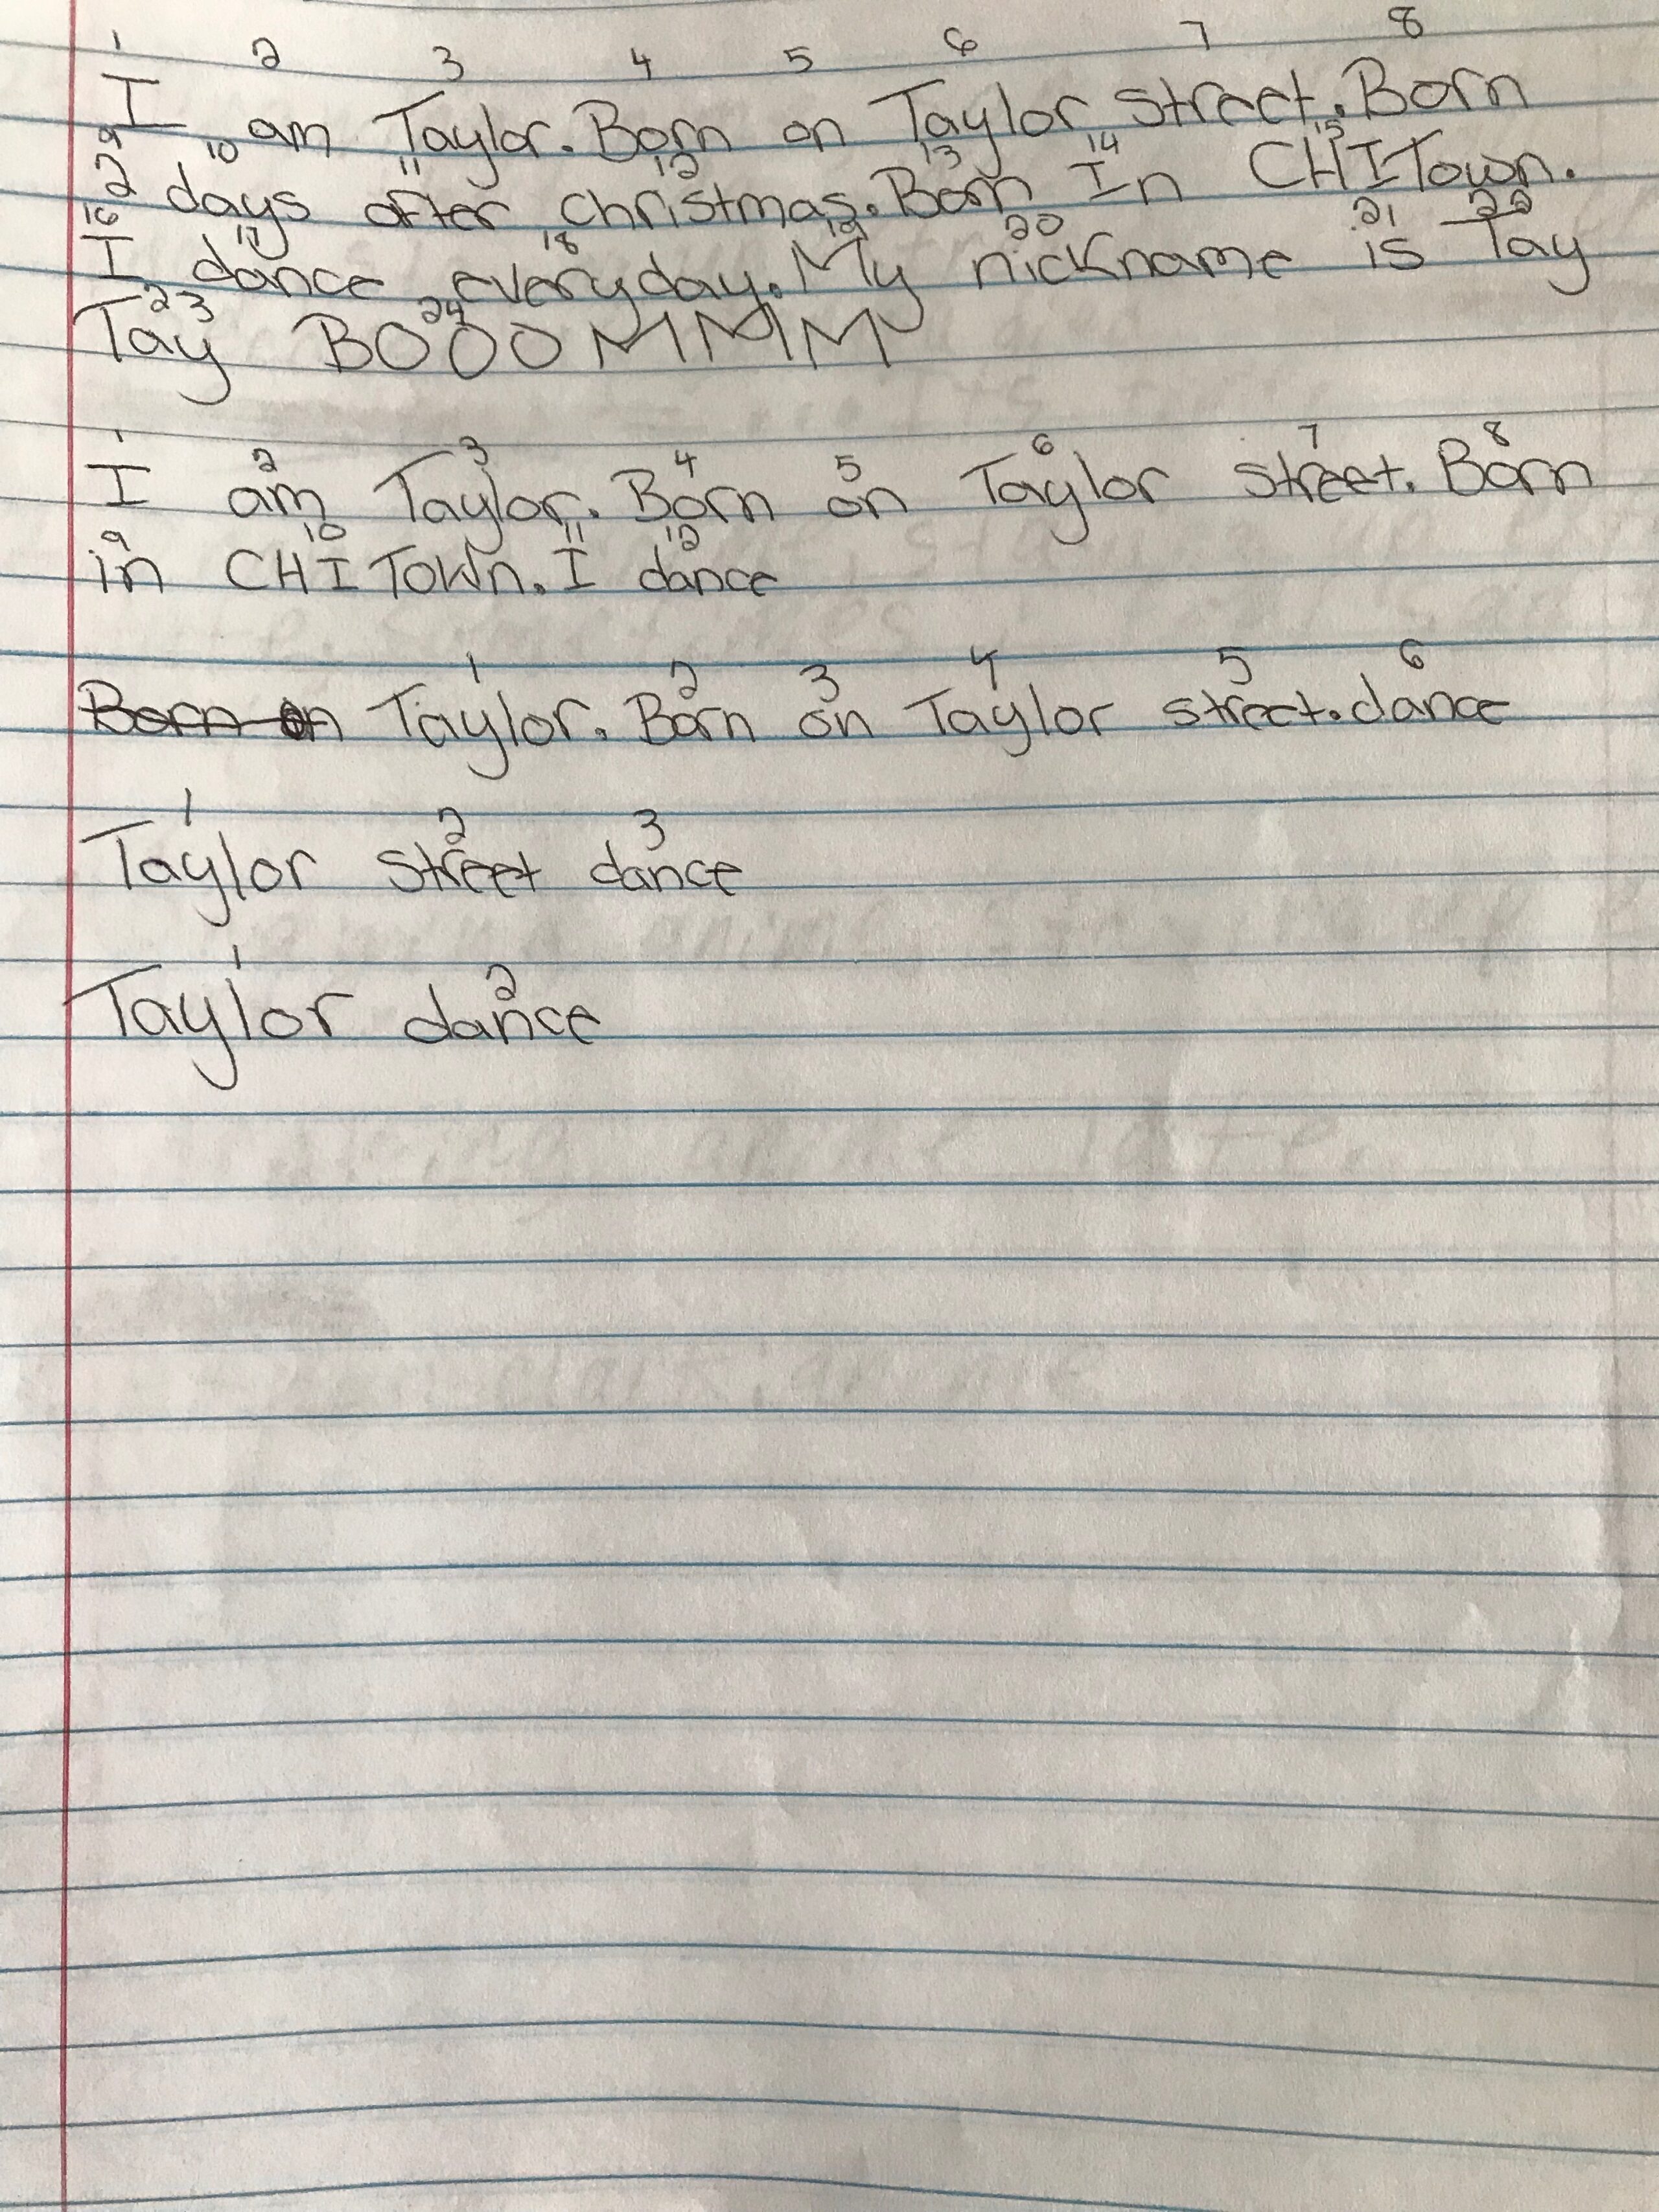 1 2 3 4 5 6 7 8
I am Taylor. Born on Taylor street. Born
9 10 11 12 13 14 15
2 days after christmas. Born In CHITown.
16 17 18 19 20 21 22
I dance everyday. My nickname is Tay
23 24
Tay BOOOMMM
1 2 3 4 5 6 7 8
I am Taylor. Born on Taylor street. Born
9 10 11 12
in CHITOWn. I dance
1 2 3 4 5 6
Born on Taylor. Born on Taylor street. dance
1 2 3
Taylor street dance
1 2
Taylor dance